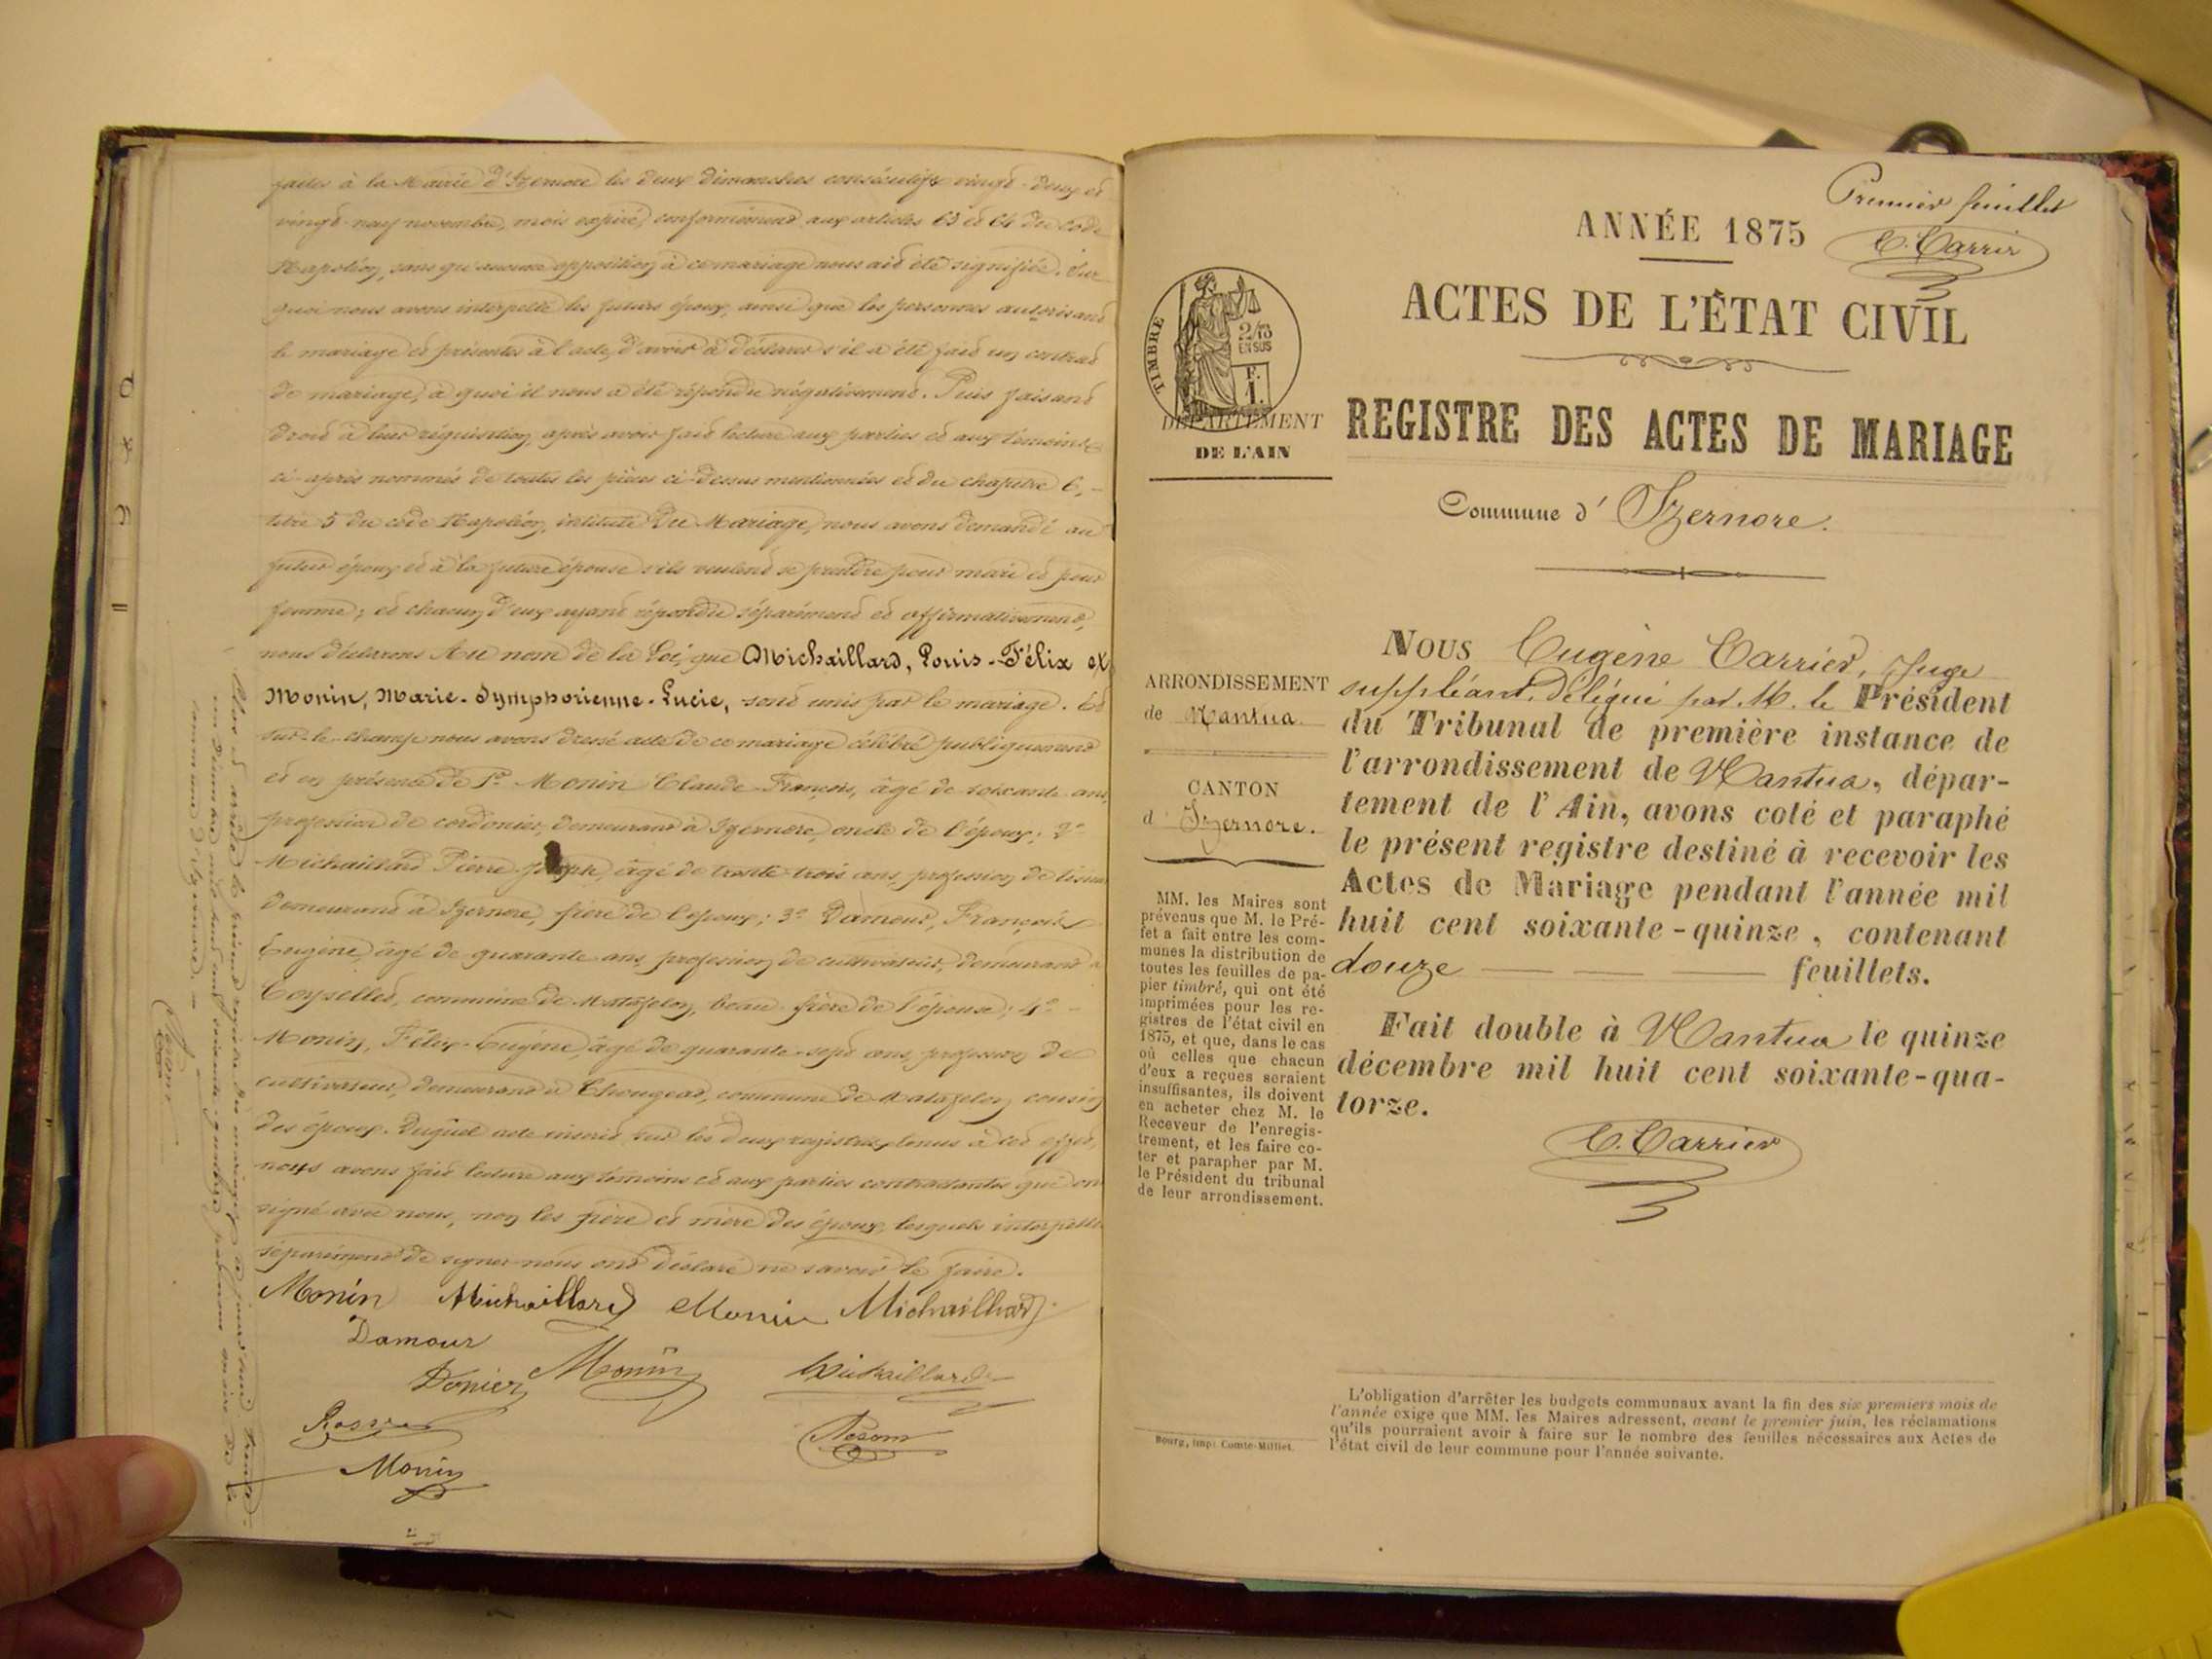 faites à la Mairie d'Izernore les deux dimanches consécutifs vingt-deux et
vingt-neuf novembre, mois expiré, conformément aux articles 63 et 64 du Code
Napoléon, sans qu'aucune opposition à ce mariage nous ait été signifiée. Sur
quoi nous avons interpellé les futurs époux, ainsi que les personnes autorisant
le mariage et présentes à l'acte, d'avoir à déclarer s'il a été fait un contrat
de mariage, à quoi il nous a été répondu négativement. Puis faisant
droit à leur réquisition, après avoir fait lecture aux parties et aux témoins
ci-après nommés de toutes les pièces ci-dessus mentionnées et du chapitre 6,
titre 5 du code Napoléon, intitulé Du Mariage, nous avons demandé au
futur époux et à la future épouse s'ils veulent se prendre pour mari et pour
femme; et chacun d'eux ayant répondu séparément et affirmativement,
nous déclarons Au nom de la Loi, que Michaillard, Louis-Félix et
Monin, Marie-Symphorienne-Lucie, sont unis par le mariage. Et
sur-le-champ nous avons dressé acte de ce mariage célébré publiquement
et en présence de 1º Monin Claude-François, âgé de soixante ans,
profession de cordonier, demeurant à Izernore, oncle de l'époux; 2º
Michaillard Pierre-Joseph, âgé de trente-trois ans, profession de
demeurant à Izernore, frère de l'époux; 3º Damour, François
Eugène, âgé de quarante ans, profession de cultivateur, demeurant à
commune de Matafelon, beau-frère de l'épouse; 4º
Monin, Félix-Eugène, âgé de quarante-sept ans, profession de
cultivateur, demeurant à Chougeat, commune de Matafelon cousin
des époux. Duquel acte inscrit sur les deux registres tenus à cet effet,
nous avons fait lecture aux témoins et aux parties contractantes qui ont
signé avec nous, non les père et mère des époux, lesquels interpellés
séparément de signer nous ont déclaré ne savoir le faire.
Monin Michaillard Monin Michailhard
Damour
Monin Michaillard
Monin
Clos et arrêté le présent registre des mariages
commune d'Izernore.
ANNÉE 1875
Premier feuillet
E. Carrier
ACTES DE L'ÉTAT CIVIL
TIMBRE
2/10
EN SUS
F.
1.
DÉPARTEMENT
DE L'AIN
REGISTRE DES ACTES DE MARIAGE
Commune d' Izernore.
ARRONDISSEMENT
de Nantua.
CANTON
d' Izernore.
MM. les Maires sont
prévenus que M. le Pré-
fet a fait entre les com-
munes la distribution de
toutes les feuilles de pa-
pier timbré, qui ont été
imprimées pour les re-
gistres de l'état civil en
1875, et que, dans le cas
où celles que chacun
d'eux a reçues seraient
insuffisantes, ils doivent
en acheter chez M. le
Receveur de l'enregis-
trement, et les faire co-
ter et parapher par M.
le Président du tribunal
de leur arrondissement.
NOUS Eugène Carrier, Juge
suppléant, Délégué par M. le Président
du Tribunal de première instance de
l'arrondissement de Nantua, dépar-
tement de l'Ain, avons coté et paraphé
le présent registre destiné à recevoir les
Actes de Mariage pendant l'année mil
huit cent soixante-quinze, contenant
douze feuillets.
Fait double à Nantua le quinze
décembre mil huit cent soixante-qua-
torze.
E. Carrier
L'obligation d'arrêter les budgets communaux avant la fin des six premiers mois de
l'année exige que MM. les Maires adressent, avant le premier juin, les réclamations
qu'ils pourraient avoir à faire sur le nombre des feuilles nécessaires aux Actes de
l'état civil de leur commune pour l'année suivante.
Bourg, imp. Comte-Milliet.